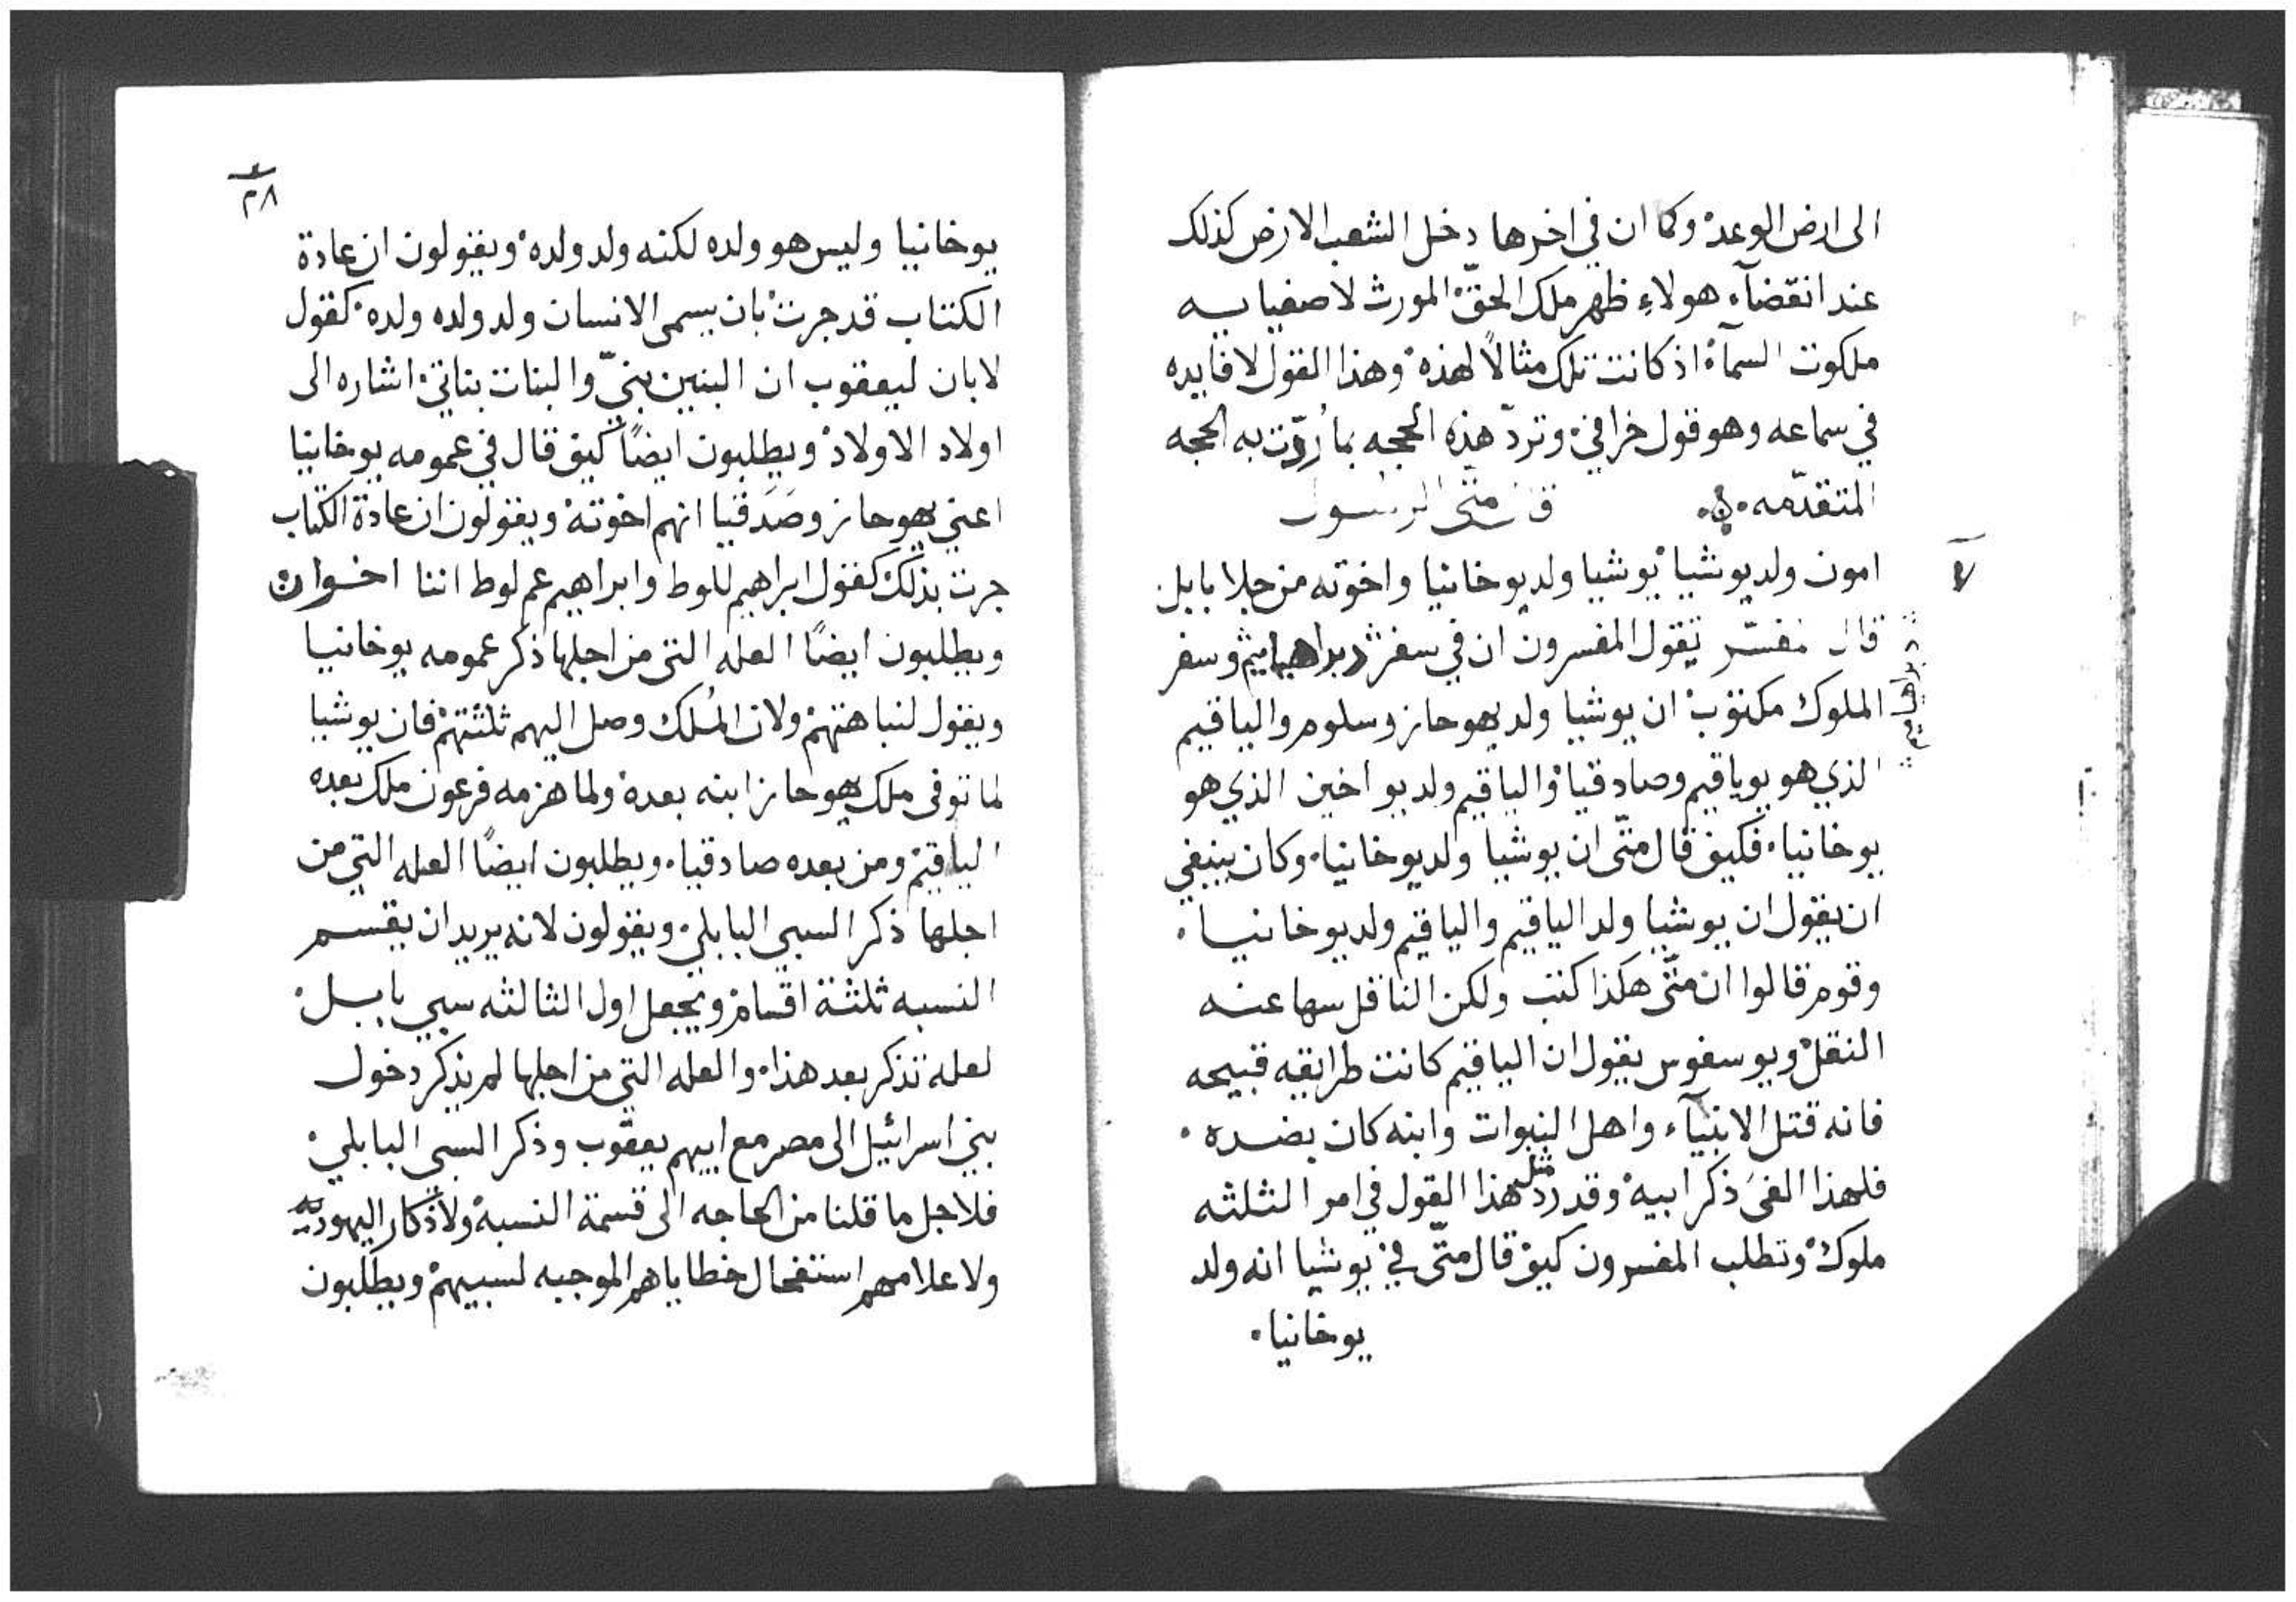 الى ارض الوعد وكما ان في اخرها دخل الشعب الارض كذلك
عند انقضآء هولاءِ ظهر ملك الحقّ المورث لاصفيايه
ملكوت السمآء اذ كانت تلك مثالاً لهذه وهذا القول لا فايده
في سماعه وهو قول خرافي وتردّ هذه الحجه بما رُدّت به الحجه
المتقدّمه ۰ قال متى الرسول
امون ولد يوشيا يوشيا ولد يوخانيا واخوته من جلا بابل
قال المفسّر يقول المفسرون ان في سفر دبراهياميم وسفر
الملوك مكتوب ان يوشيا ولد يهوحاز وسلوم والياقيم
الذي هو يوياقيم وصادقيا والياقيم ولد يواخين الذي هو
يوخانيا۰ فكيف قال متّى ان يوشيا ولد يوخانيا۰ وكان ينبغي
ان يقول ان يوشيا ولد الياقيم والياقيم ولد يوخانيا۰
وقوم قالوا ان متّى هكذا كتب ولكن الناقل سها عنه
النقل ويوسفوس يقول ان الياقيم كانت طرايقه قبيحه
فانه قتل الانبيآء واهل النبوات وابنه كان بضده۰
فلهذا الغىَ ذكر ابيه وقد ردّ مثل هذا القول في امر الثلثه
ملوك وتطلب المفسرون كيف قال متّى في يوشيا انه ولد
يوخانيا۰
٢٨
يوخانيا وليس هو ولده لكنه ولد ولده ويقولون ان عادة
الكتاب قد جرت بان يسمى الانسان ولد ولده ولده كقول
لابان ليعقوب ان البنين بنيّ والبنات بناتي اشاره الى
اولاد الاولاد ويطلبون ايضًا كيف قال في عمومه يوخانيا
اعني يهوحاز وصَدَقيا انهم اخوته ويقولون ان عادة الكتاب
جرت بذلك كقول ابراهيم للوط وابراهيم عم لوط اننا اخوان
ويطلبون ايضًا العله التي من اجلها ذكر عمومه يوخانيا
ويقول لنباهتهم ولان المُلك وصل اليهم ثلثتهم فان يوشيا
لما توفى ملك يهوحاز ابنه بعده ولما هزمه فرعون ملك بعده
الياقيم ومن بعده صادقيا۰ ويطلبون ايضًا العله التي من
اجلها ذكر السبي البابلي۰ ويقولون لانه يريد ان يقسم
النسبه ثلثة اقسام ويجعل اول الثالثه سبي بابل
لعله تذكر بعد هذا۰ والعله التي من اجلها لم يذكر دخول
بني اسرائيل الى مصر مع ابيهم يعقوب وذكر السبي البابلي
فلاجل ما قلنا من الحاجه الى قسمة النسبه ولاذكار اليهود به
ولاعلامهم استفحال خطاياهم الموجبه لسبيهم ويطلبون